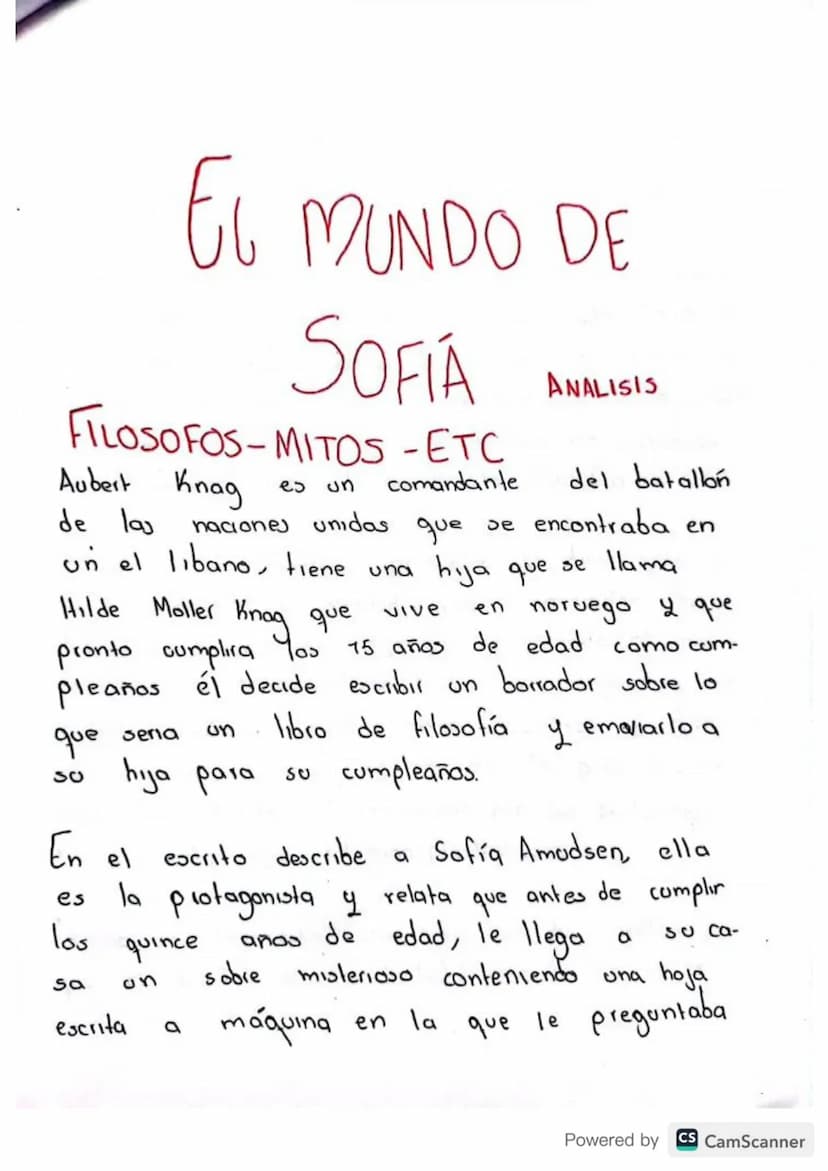 EL MUNDO DE
SOFÍA ANALISIS
FILOSOFOS-MITOS-ETC
Aubert Knag es un comandante del batallón
de las naciones unidas que se encontraba en
un el libano, tiene una hija que se llama
Hilde Moller Knag que vive en noruego y que
pronto cumplira los 15 años de edad como cum-
pleaños él decide escribir un borrador sobre lo
que seria un libro de filosofía y emviarlo a
su hija para su cumpleaños.
En el escrito describe a Sofía Amudsen, ella
es la protagonista y relata que antes de cumplir
los quince años de edad, le llega a su ca-
sa un sobre misterioso conteniendo una hoja
escrita a máquina en la que le preguntaba
Powered by CS CamScanner